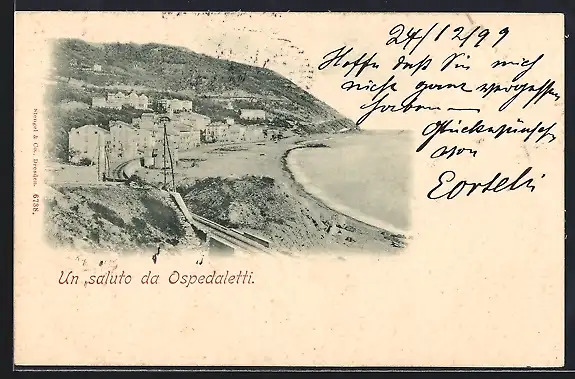 24/12 99
Hoffe daß Sie mich
nicht ganz vergessen
haben
Glückwünsche
von
Un saluto da Ospedaletti.
Stengel & Co., Dresden. 6738.